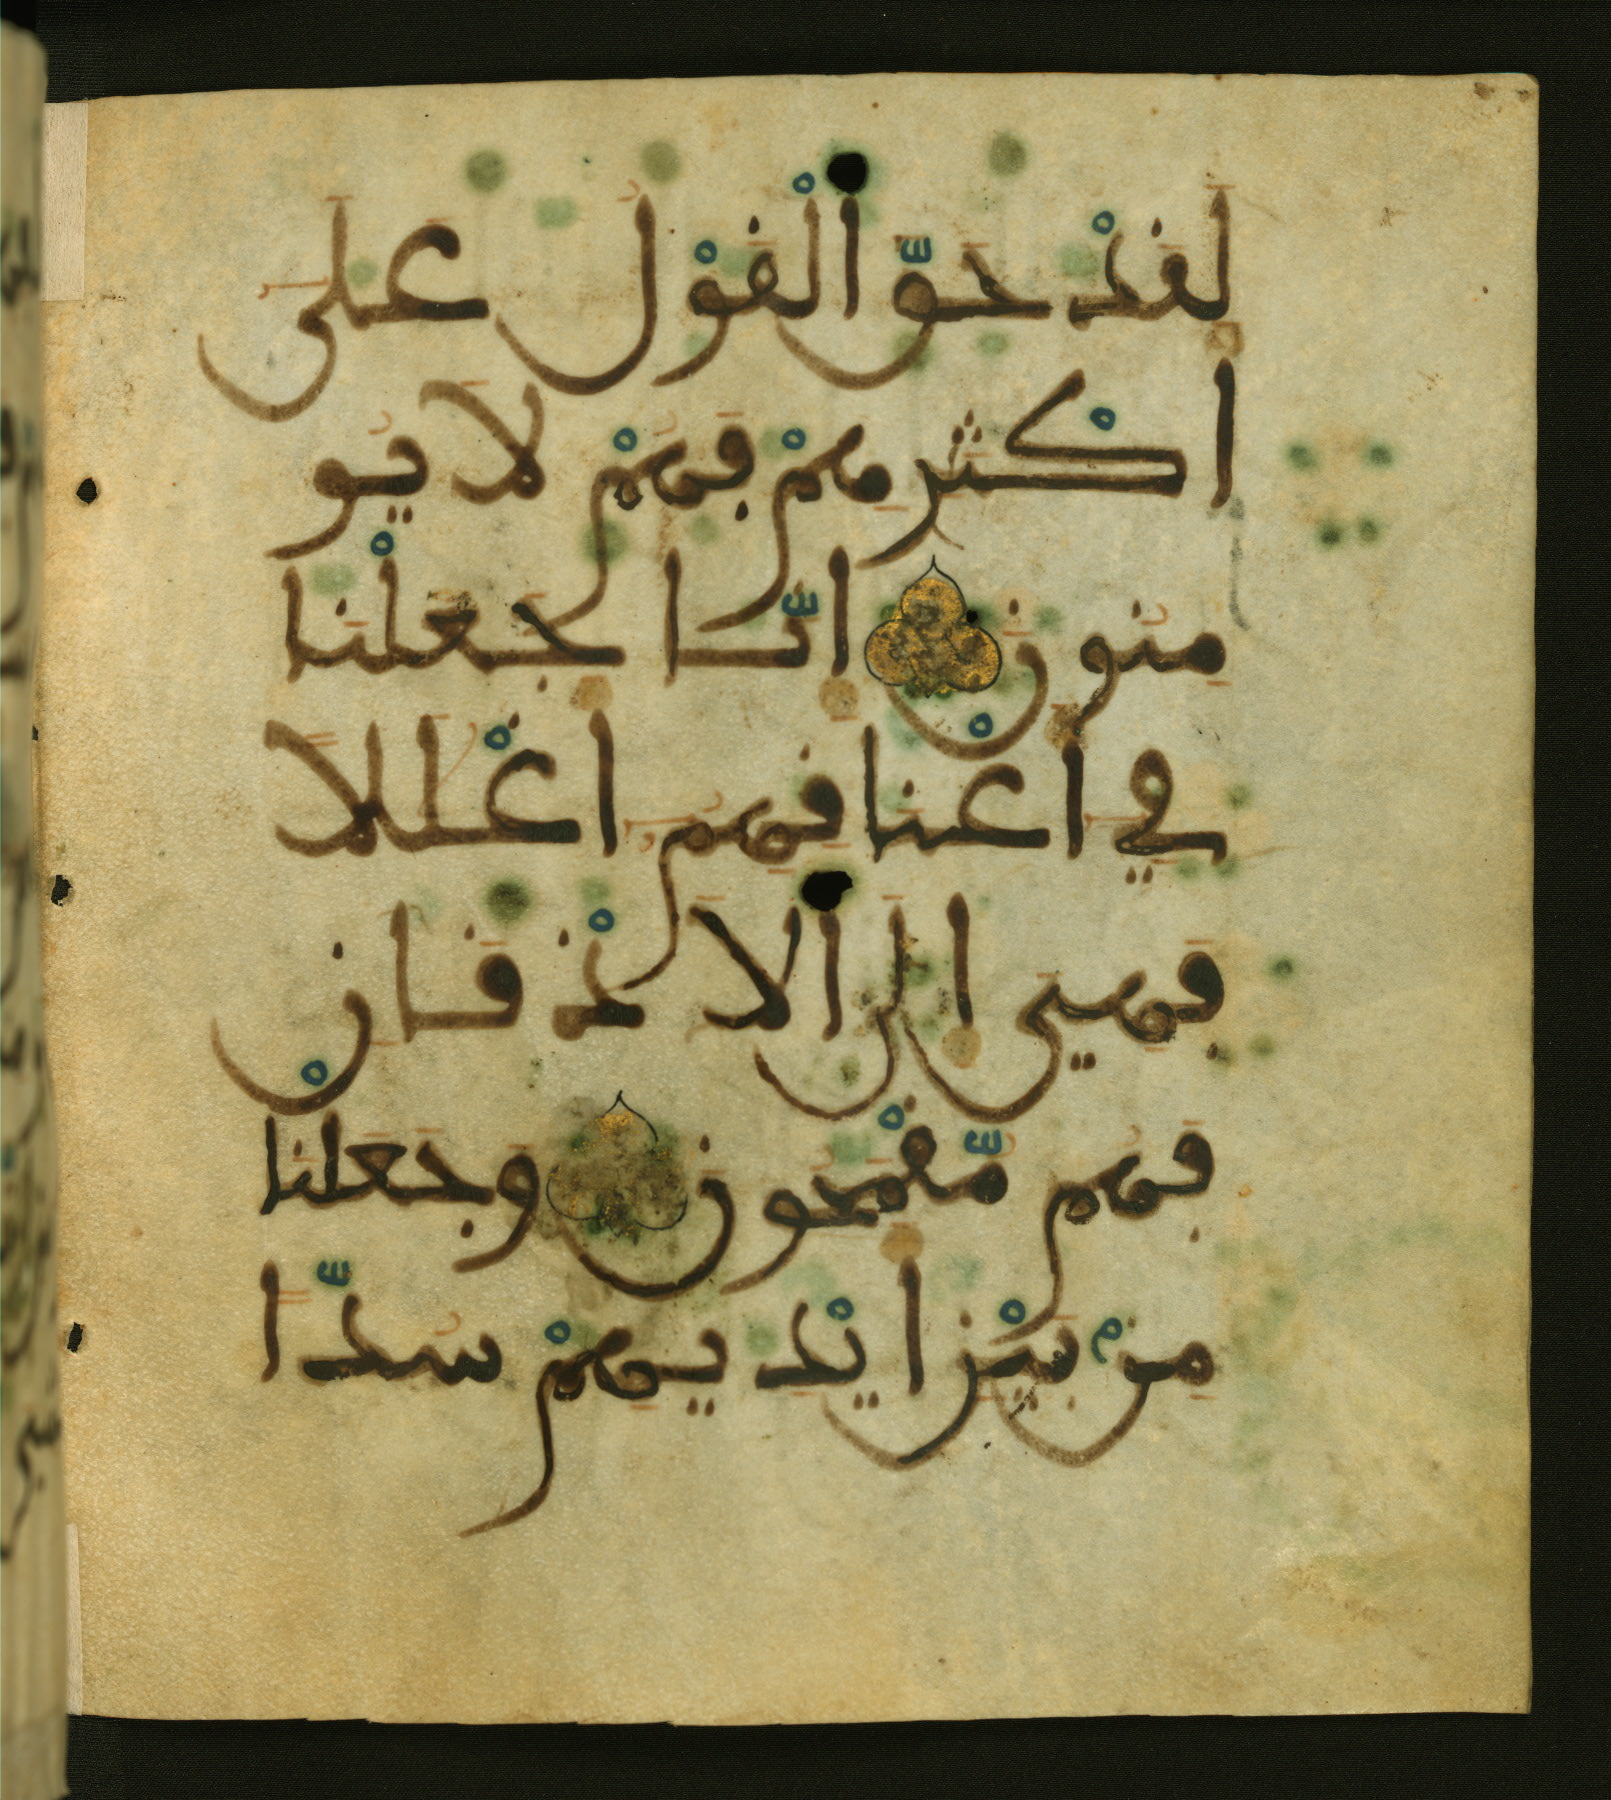 لَقَدْ حَقَّ ٱلْقَوْلُ عَلَىٰٓ
أَكْثَرِهِمْ فَهُمْ لَا يُو
مِنُونَ إِنَّا جَعَلْنَا
فِىٓ أَعْنَٰقِهِمُۥٓ أَغْلَٰلًا
فَهِىَ إِلَى ٱلَاذْقَانِ
فَهُم مُّقْمَحُونَ وَجَعَلْنَا
مِنۢ بَيْنِ أَيْدِيهِمْ سُدًّا